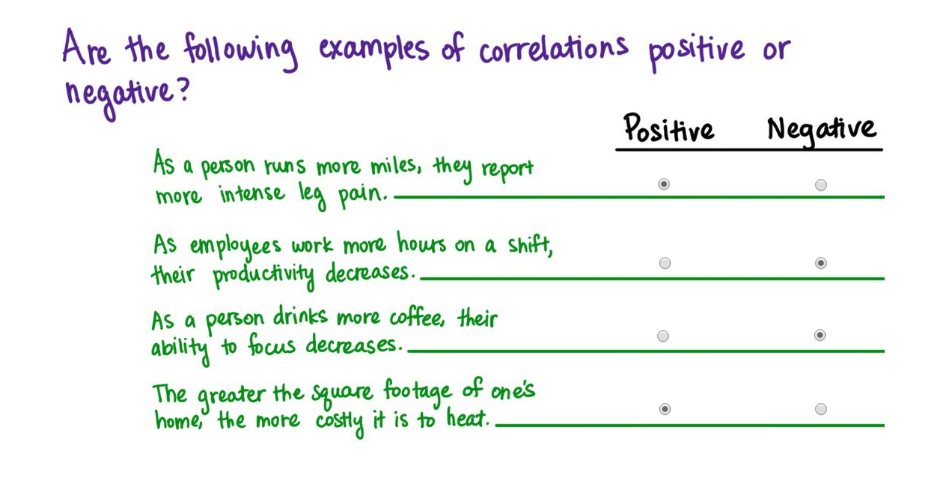 Are the following examples of correlations positive or
negative?
Positive Negative
As a person runs more miles, they report
more intense leg pain.
As employees work more hours on a shift,
their productivity decreases.
As a person drinks more coffee, their
ability to focus decreases.
The greater the square footage of one's
home, the more costly it is to heat.